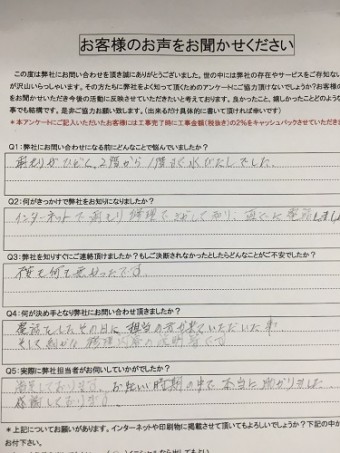 お客様のお声をお聞かせください
この度は弊社にお問い合わせを頂き誠にありがとうございました。世の中には弊社の存在やサービスをご存知ない
が沢山いらっしゃいます。その方たちに弊社をよく知って頂くためのアンケートにご協力頂けないでしょうか?お客様
をお聞かせいただき今後の活動に反映させていただきたいと考えております。良かったこと、嬉しかったことどのような
事でも結構です。是非ご協力お願いいたします。(出来るだけ具体的に書いて頂ければ幸いです)
*本アンケートにご記入いただいたお客様には工事完了時に工事金額(税抜き)の2%をキャッシュバックさせていただきま
Q1:弊社にお問い合わせになる前にどんなことで悩んでいましたか?
雨もりがひどく、2階から1階まで水びたしでした。
Q2:何がきっかけで弊社をお知りになりましたか?
インターネットで雨もり修理でさがしており、直ぐに電話しまし
Q3:弊社を知りすぐにご連絡頂けますか?もしご決断されなかったとしたらどんなことがご不安でしたか?
です。
Q4:何が決め手となり弊社にお問い合わせ頂きましたか?
電話をしたその日に担当の方が来ていただいた事、
そして 修理内容の説明 です
Q5:実際に弊社担当者がお伺いしていかがでしたか?
満足しております。お忙しい時期の中で本当に助かりました。
感謝しております。
*上記についてお願いがあります。インターネットや印刷物に掲載させて頂いてもよろしいでしょうか?下記の中か
お付下さい。